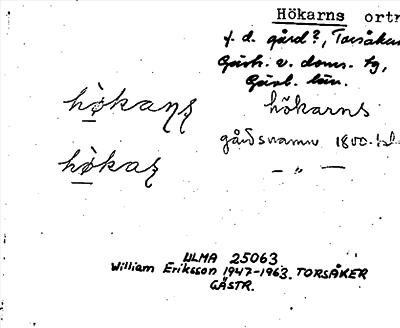 Hökarns ortn
f. d. gård?, Torsåker
Gästr. v. doms. tg,
Gävl. län.
hökans hökarns
gårdsnamn 1800-tal
hökas — " —
ULMA 25063
William Eriksson 1947-1963. TORSÅKER
GÄSTR.